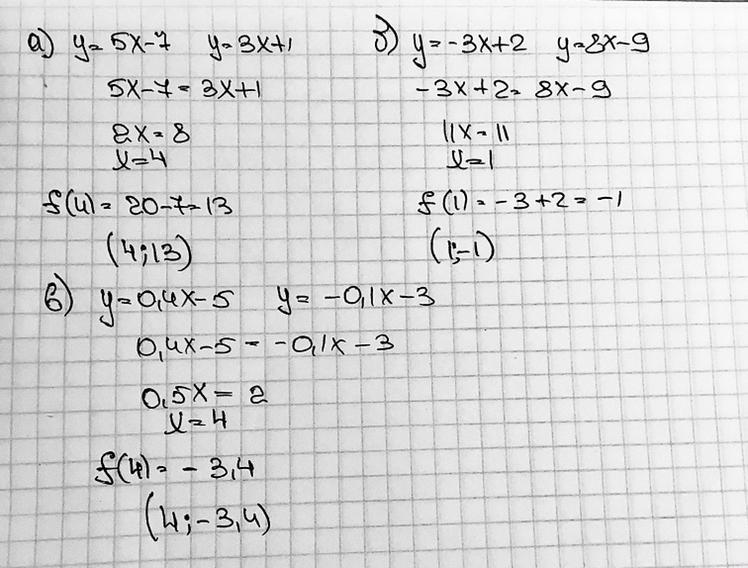 а) y=5x-7 y=3x+1
5x-7=3x+1
2x=8
x=4
f(4)=20-7=13
(4;13)
б) y=-3x+2 y=8x-9
-3x+2=8x-9
11x=11
x=1
f(1)=-3+2=-1
(1;-1)
в) y=0,4x-5 y=-0,1x-3
0,4x-5=-0,1x-3
0,5x=2
x=4
f(4)=-3,4
(4;-3,4)